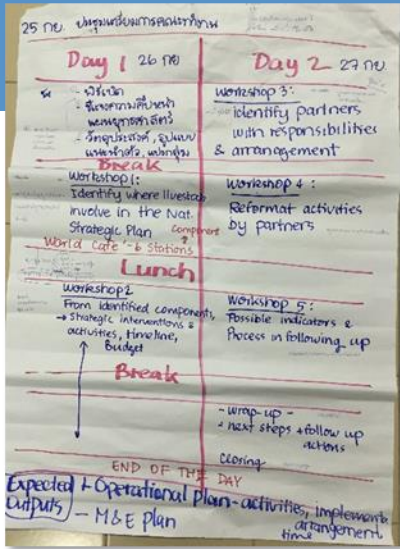 25 กย. ประชุมเตรียมการคณะทำงาน
Day 1 26 กย
- พิธีเปิด
- ชี้แจงความคืบหน้า
แผนยุทธศาสตร์
- วัตถุประสงค์, รูปแบบ
แนะนำตัว, แบ่งกลุ่ม
Break
Workshop 1:
Identify where livestock
involve in the Nat.
Strategic Plan component
World Cafe' - 6 Stations
Lunch
Workshop 2
From identified components,
→ Strategic interventions &
activities, timeline,
Budget
Break
Day 2 27 กย.
Workshop 3:
identify partners
with responsibilities
& arrangement
Workshop 4:
Reformat activities
by partners
Workshop 5:
Possible indicators &
Process in following up
- wrap-up -
- next steps + follow up
actions
closing
END OF THE DAY
Expected Outputs
- Operational plan - activities,
arrangement
time
- M&E plan